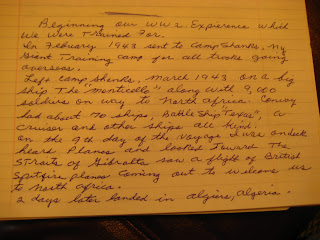 Beginning our WW2. Expierence which
we were Trained For.
In February 1943 sent to Camp Shanks, NY
Giant Training camp for all Troops going
overseas.
Left Camp Shenks, March 1943 on a big
ship The "Monticello" along with 9,000
soldiers on wry to North Africa. Convoy
had about 70 ships, Battle Ship "Texas", a
cruiser and other ships all kind.
on the 9th day of the voyage I was on deck
hears Planes and looked Toward The
STraiTs of Gibralta saw a flight of British
Spitfire planes coming out to welcome us
to North Africa.
2 days later landed in algiers, Algeria.